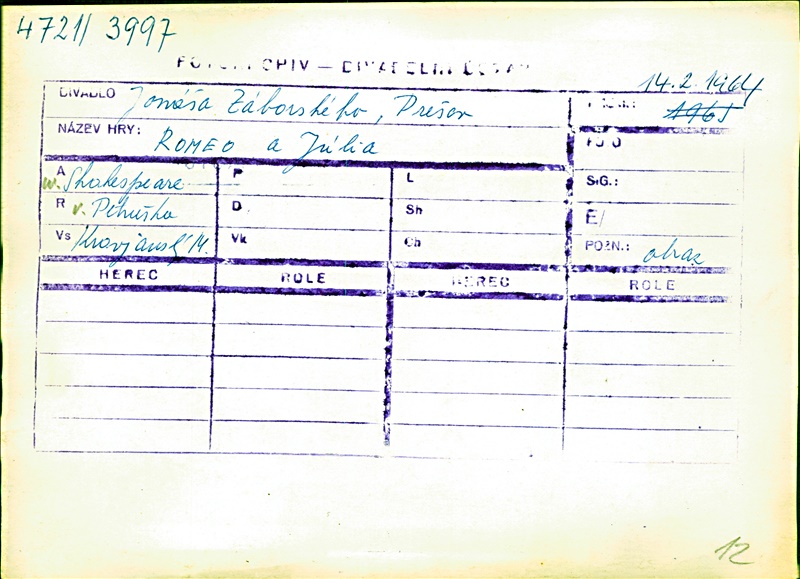 4721/ 3997
FOTOARCHIV — DIVADELNÍ ÚSTAV
14.2.1964
DIVADLO Jonáša Záborského, Prešov
PREM.: 1965
NÁZEV HRY: ROMEO a Júlia
FOTO
A w. Shakespeare P L SIG.:
R v. Petruška D Sh E/
Vs Kravjanský M. Vk Ch POZN.: obraz
HEREC ROLE HEREC ROLE
12